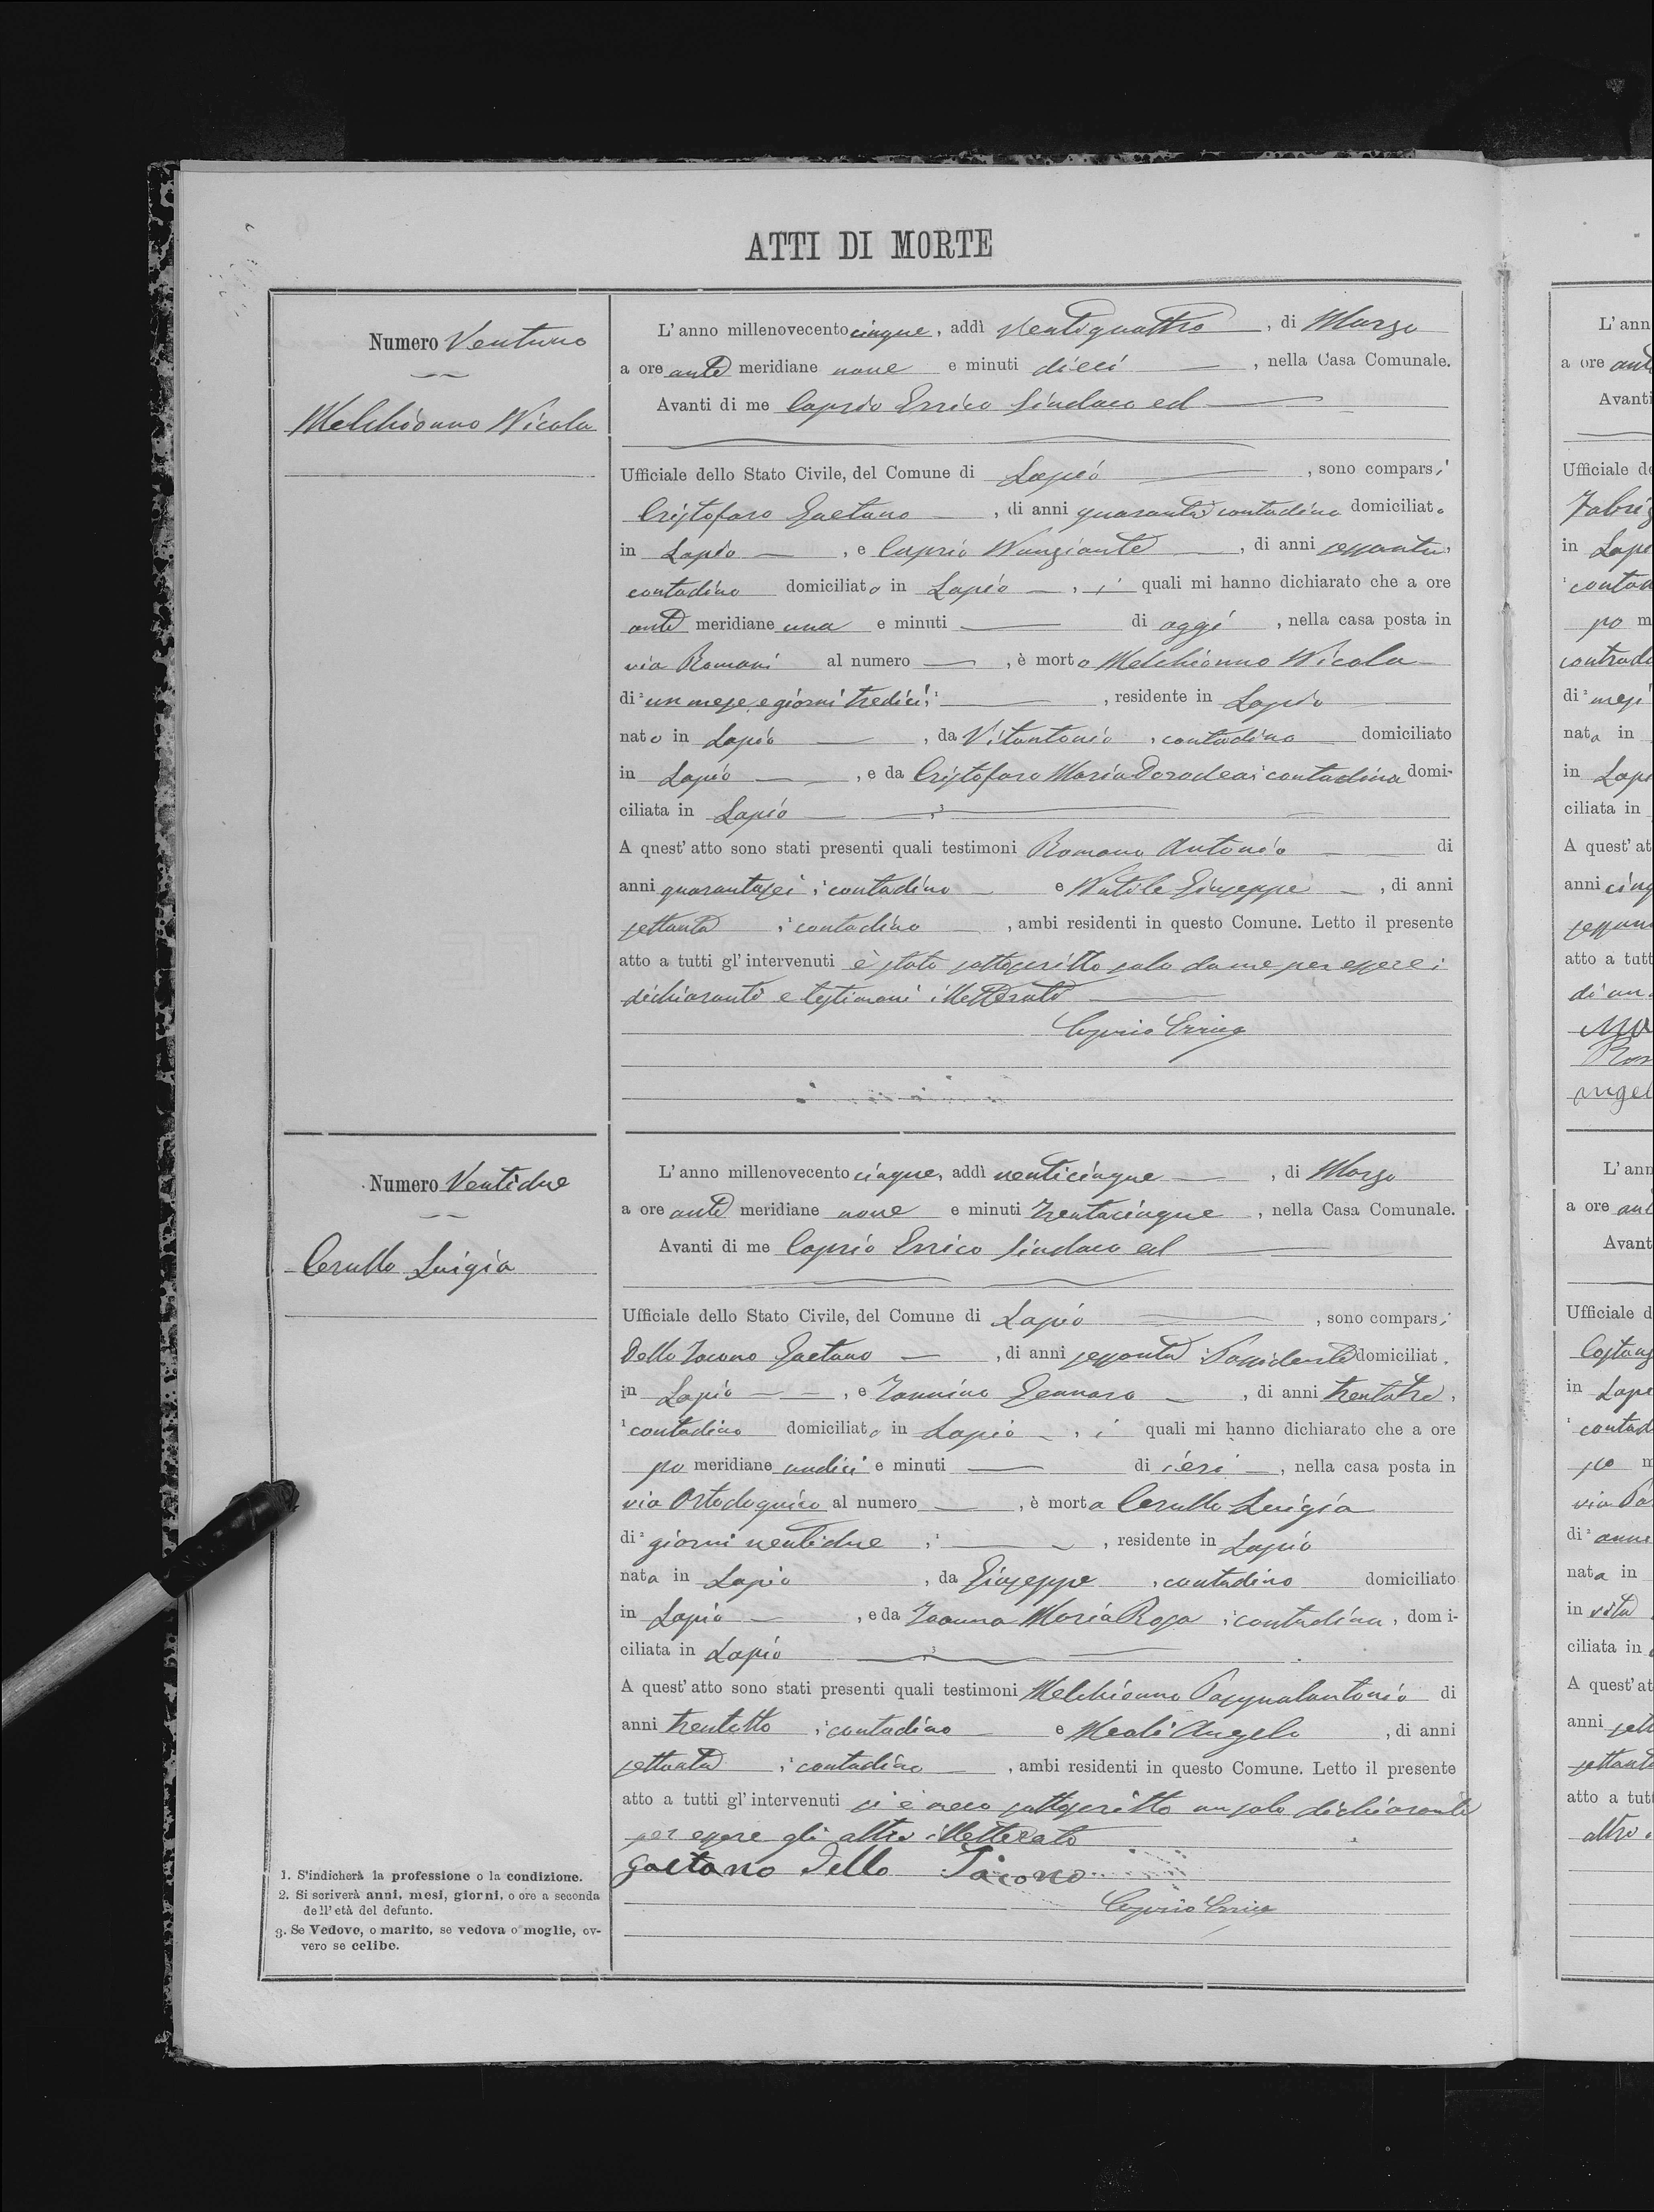 ATTI DI MORTE
Numero Ventuno
Melchionno Nicola
L'anno millenovecento cinque, addì ventiquattro, di Marzo
a ore ante meridiane nove e minuti dieci, nella Casa Comunale.
Avanti di me Caprio Errico Sindaco ed
Ufficiale dello Stato Civile, del Comune di Lapio, sono comparsi
Cristofaro Gaetano, di anni quaranta contadino domiciliato
in Lapio, e Caprio Nunziante, di anni sessanta,
contadino domiciliato in Lapio, i quali mi hanno dichiarato che a ore
ante meridiane una e minuti di oggi, nella casa posta in
via Romani al numero, è morto Melchionno Nicola
di un mese e giorni tredici, residente in Lapio
nato in Lapio, da Vitantonio, contadino domiciliato
in Lapio, e da Cristofaro Maria Doradea contadina domi-
ciliata in Lapio
A quest'atto sono stati presenti quali testimoni Romano Antonio di
anni quarantasei, contadino e Nutile Giuseppe, di anni
settanta, contadino, ambi residenti in questo Comune. Letto il presente
atto a tutti gl'intervenuti è stato sottoscritto solo da me per essere i
dichiaranti e testimoni illetterati
Caprio Errico
Numero Ventidue
Cerullo Luigia
L'anno millenovecento cinque, addì venticinque, di Marzo
a ore ante meridiane nove e minuti trentacinque, nella Casa Comunale.
Avanti di me Caprio Errico Sindaco ed
Ufficiale dello Stato Civile, del Comune di Lapio, sono comparsi
Dello Iacono Gaetano, di anni sessanta Possidente domiciliat.
in Lapio, e Iannino Gennaro, di anni trentatre,
contadino domiciliato in Lapio, i quali mi hanno dichiarato che a ore
po meridiane undici e minuti di ieri, nella casa posta in
via al numero, è morta Cerullo Luigia
di giorni ventidue, residente in Lapio
nata in Lapio, da Giuseppe, contadino domiciliato
in Lapio, e da Maria Rosa, contadina, domi-
ciliata in Lapio
A quest'atto sono stati presenti quali testimoni Melchionno Pasqualantonio di
anni trentotto, contadino e Meoli Angelo, di anni
settanta, contadino, ambi residenti in questo Comune. Letto il presente
atto a tutti gl'intervenuti si è meco sottoscritto un solo dichiarante
per essere gli altri illetterato
Gaetano Dello Iacono
Caprio Errico
1. S'indicherà la professione o la condizione.
2. Si scriverà anni, mesi, giorni, o ore a seconda
dell'età del defunto.
3. Se Vedovo, o marito, se vedova o moglie, ov-
vero se celibe.
L'ann
a ore ant
Avanti
Ufficiale de
in Lapi
po m
nata in
in Lapi
ciliata in
A quest'at
anni cinq
atto a tutt
L'ann
a ore ant
Avant
Ufficiale d
in Lapi
contad
po m
nata in
in vita
ciliata in
A quest'at
anni sett
settanta
atto a tutt
altro